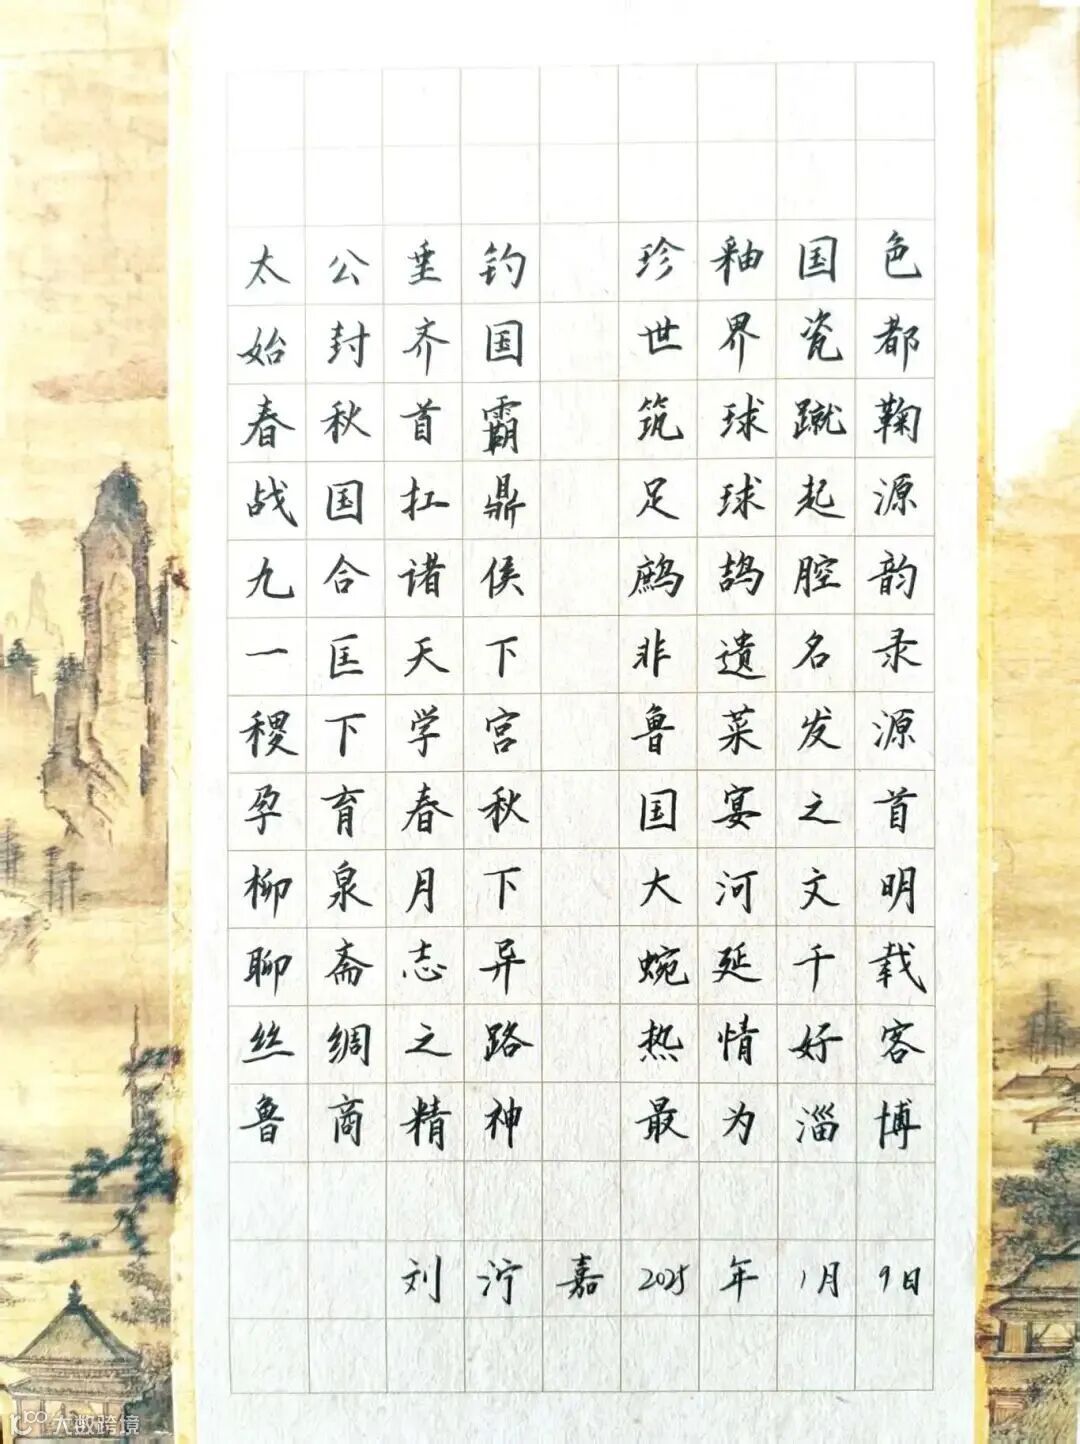 太公垂钓 珍釉国色
始封齐国 世界瓷都
春秋首霸 筑球蹴鞠
战国扛鼎 足球起源
九合诸侯 鹧鸪腔韵
一匡天下 非遗名录
稷下学宫 鲁菜发源
孕育春秋 国宴之首
柳泉月下 大河文明
聊斋志异 蜿延千载
丝绸之路 热情好客
鲁商精神 最为淄博
刘泞嘉 2025年1月9日
大数跨境